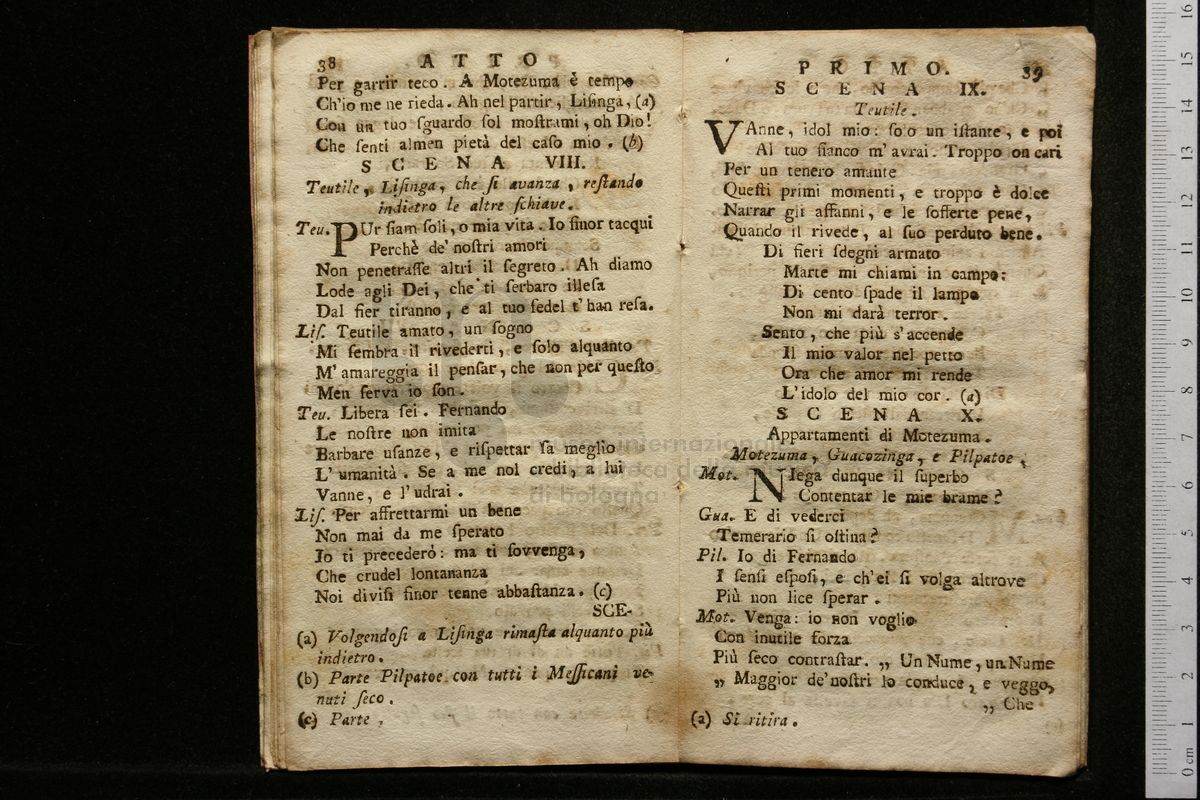 38 ATTO
Per garrir teco. A Motezuma è tempo
Ch'io me ne rieda. Ah nel partir, Liſinga, (a)
Con un tuo ſguardo ſol moſtrami, oh Dio!
Che ſenti almen pietà del caſo mio. (b)
SCENA VIII.
Teutile, Liſinga, che ſi avanza, reſtando
indietro le altre ſchiave.
Teu. PUr ſiam ſoli, o mia vita. Io finor tacqui
Perchè de' noſtri amori
Non penetraſſe altri il ſegreto. Ah diamo
Lode agli Dei, che ti ſerbaro illeſa
Dal fier tiranno, e al tuo fedel t' han reſa.
Liſ. Teutile amato, un ſogno
Mi ſembra il rivederti, e ſolo alquanto
M' amareggia il penſar, che non per queſto
Men ſerva io ſon.
Teu. Libera ſei. Fernando
Le noſtre non imita
Barbare uſanze, e riſpettar ſa meglio
L' umanità. Se a me nol credi, a lui
Vanne, e l' udrai.
Liſ. Per affrettarmi un bene
Non mai da me ſperato
Io ti precederò: ma ti ſovvenga,
Che crudel lontananza
Noi diviſi finor tenne abbaſtanza. (c)
SCE-
(a) Volgendoſi a Liſinga rimaſta alquanto più
indietro.
(b) Parte Pilpatoe con tutti i Meſſicani ve-
nuti ſeco.
(c) Parte.
PRIMO. 39
SCENA IX.
Teutile.
VAnne, idol mio: ſolo un iſtante, e poi
Al tuo fianco m' avrai. Troppo on cari
Per un tenero amante
Queſti primi momenti, e troppo è dolce
Narrar gli affanni, e le ſofferte pene,
Quando il rivede, al ſuo perduto bene.
Di fieri ſdegni armato
Marte mi chiami in campo:
Di cento ſpade il lampo
Non mi darà terror.
Sento, che più s' accende
Il mio valor nel petto
Ora che amor mi rende
L' idolo del mio cor. (a)
SCENA X.
Appartamenti di Motezuma.
Motezuma, Guacozinga, e Pilpatoe.
Mot. NIega dunque il ſuperbo
Contentar le mie brame?
Gua. E di vederci
Temerario ſi oſtina?
Pil. Io di Fernando
I ſenſi eſpoſi, e ch' ei ſi volga altrove
Più non lice ſperar.
Mot. Venga: io non voglio
Con inutile forza
Più ſeco contraſtar. „ Un Nume, un Nume
„ Maggior de' noſtri lo conduce, e veggo,
„ Che
(a) Si ritira.
museo internazionale
biblioteca della
di bologna
0 cm 1 2 3 4 5 6 7 8 9 10 11 12 13 14 15 16